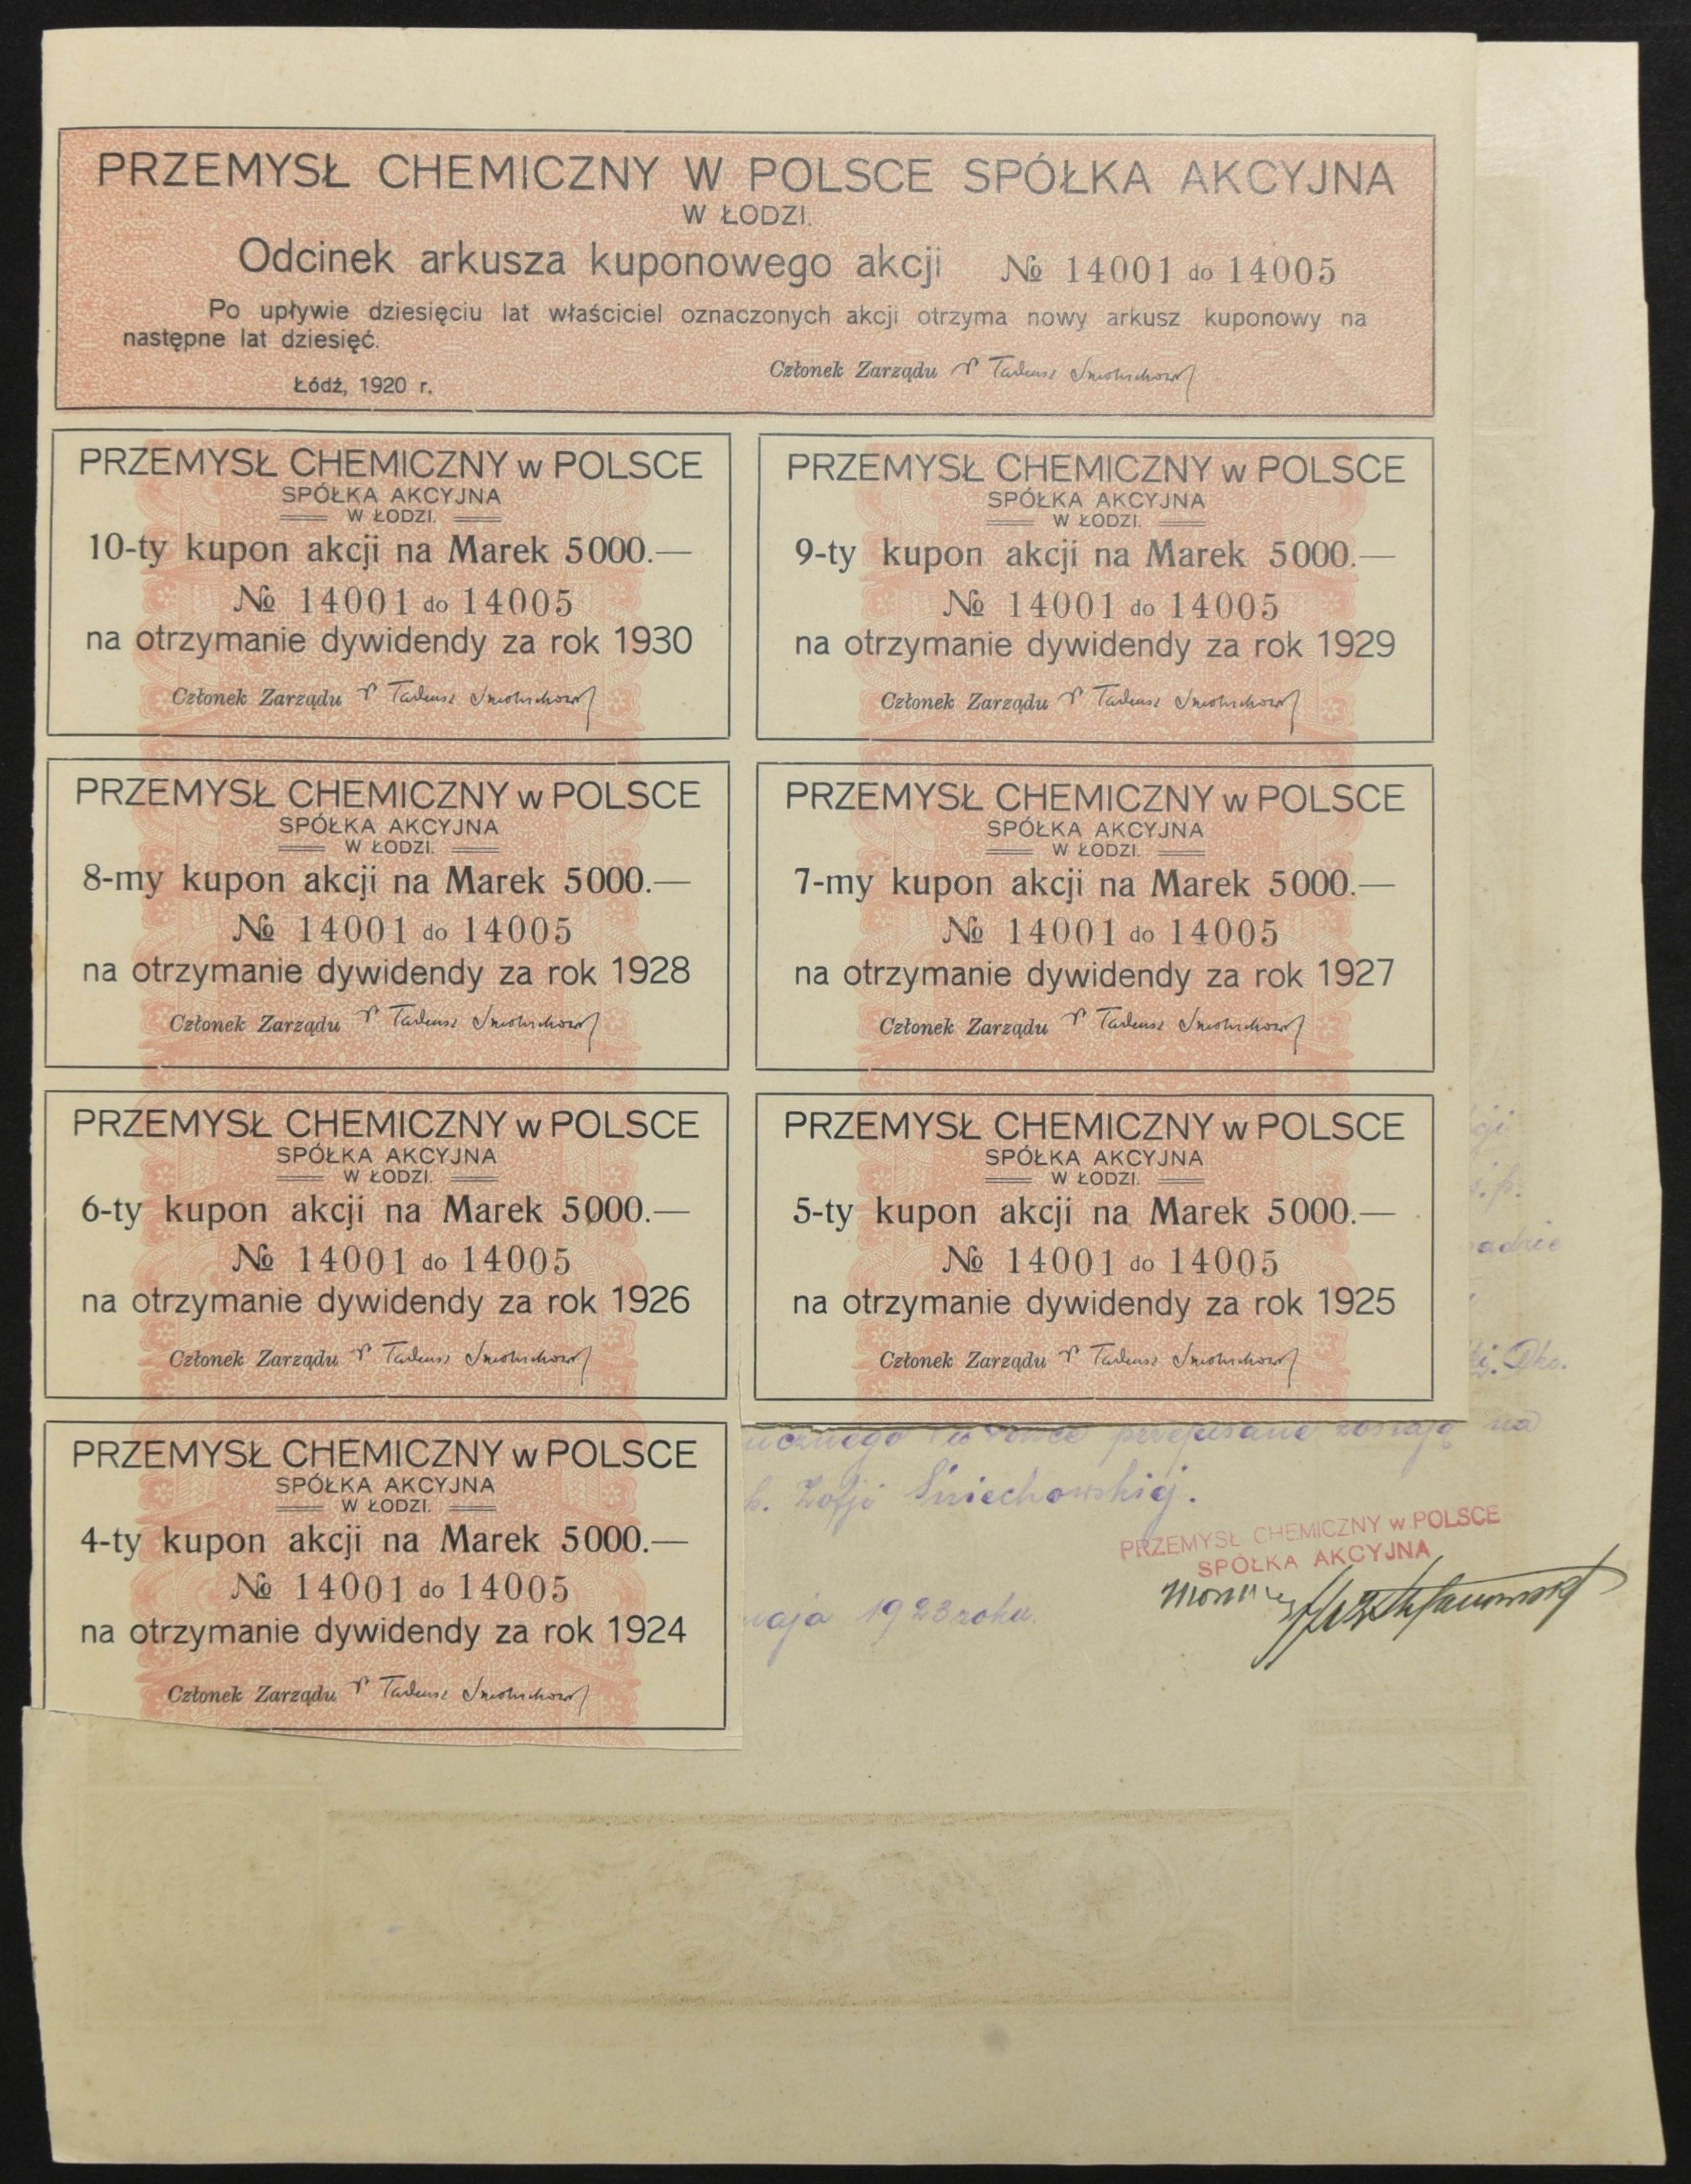 PRZEMYSŁ CHEMICZNY W POLSCE SPÓŁKA AKCYJNA
W ŁODZI.
Odcinek arkusza kuponowego akcji № 14001 do 14005
Po upływie dziesięciu lat właściciel oznaczonych akcji otrzyma nowy arkusz kuponowy na
następne lat dziesięć.
Łódź, 1920 r.
Członek Zarządu Tadeusz
PRZEMYSŁ CHEMICZNY w POLSCE
SPÓŁKA AKCYJNA
W ŁODZI.
10-ty kupon akcji na Marek 5000.—
№ 14001 do 14005
na otrzymanie dywidendy za rok 1930
Członek Zarządu Tadeusz
PRZEMYSŁ CHEMICZNY w POLSCE
SPÓŁKA AKCYJNA
W ŁODZI.
9-ty kupon akcji na Marek 5000.—
№ 14001 do 14005
na otrzymanie dywidendy za rok 1929
Członek Zarządu Tadeusz
PRZEMYSŁ CHEMICZNY w POLSCE
SPÓŁKA AKCYJNA
W ŁODZI.
8-my kupon akcji na Marek 5000.—
№ 14001 do 14005
na otrzymanie dywidendy za rok 1928
Członek Zarządu Tadeusz
PRZEMYSŁ CHEMICZNY w POLSCE
SPÓŁKA AKCYJNA
W ŁODZI.
7-my kupon akcji na Marek 5000.—
№ 14001 do 14005
na otrzymanie dywidendy za rok 1927
Członek Zarządu Tadeusz
PRZEMYSŁ CHEMICZNY w POLSCE
SPÓŁKA AKCYJNA
W ŁODZI.
6-ty kupon akcji na Marek 5000.—
№ 14001 do 14005
na otrzymanie dywidendy za rok 1926
Członek Zarządu Tadeusz
PRZEMYSŁ CHEMICZNY w POLSCE
SPÓŁKA AKCYJNA
W ŁODZI.
5-ty kupon akcji na Marek 5000.—
№ 14001 do 14005
na otrzymanie dywidendy za rok 1925
Członek Zarządu Tadeusz
PRZEMYSŁ CHEMICZNY w POLSCE
SPÓŁKA AKCYJNA
W ŁODZI.
4-ty kupon akcji na Marek 5000.—
№ 14001 do 14005
na otrzymanie dywidendy za rok 1924
Członek Zarządu Tadeusz
przepisane zostają na
Zofji Śniechowskiej.
PRZEMYSŁ CHEMICZNY w POLSCE
SPÓŁKA AKCYJNA
maja 1923 roku.